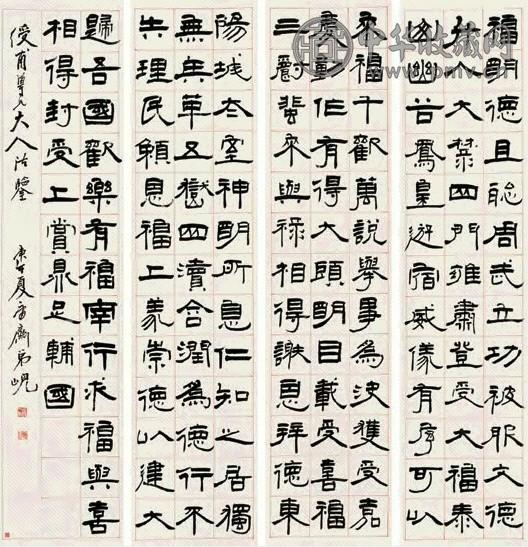 福明德且聰周武立功被服文德
升入大麓四門雍肅登受大福泰
山幽谷鳳皇遊宿威儀有序可以
來福千歡萬說舉事為決獲受嘉
慶動作有得大頭明目載受喜福
三爵蜚來與祿相得謝恩拜德東
陽城太室神明所息仁知之居獨
無兵革五嶽四瀆合潤為德行不
失理民賴恩福上義崇德以建大
歸吾國歡樂有福南行求福與喜
相得封受上賞鼎足輔國
綬甫尊兄大人法鑒 夏 弟峴
中华收藏网